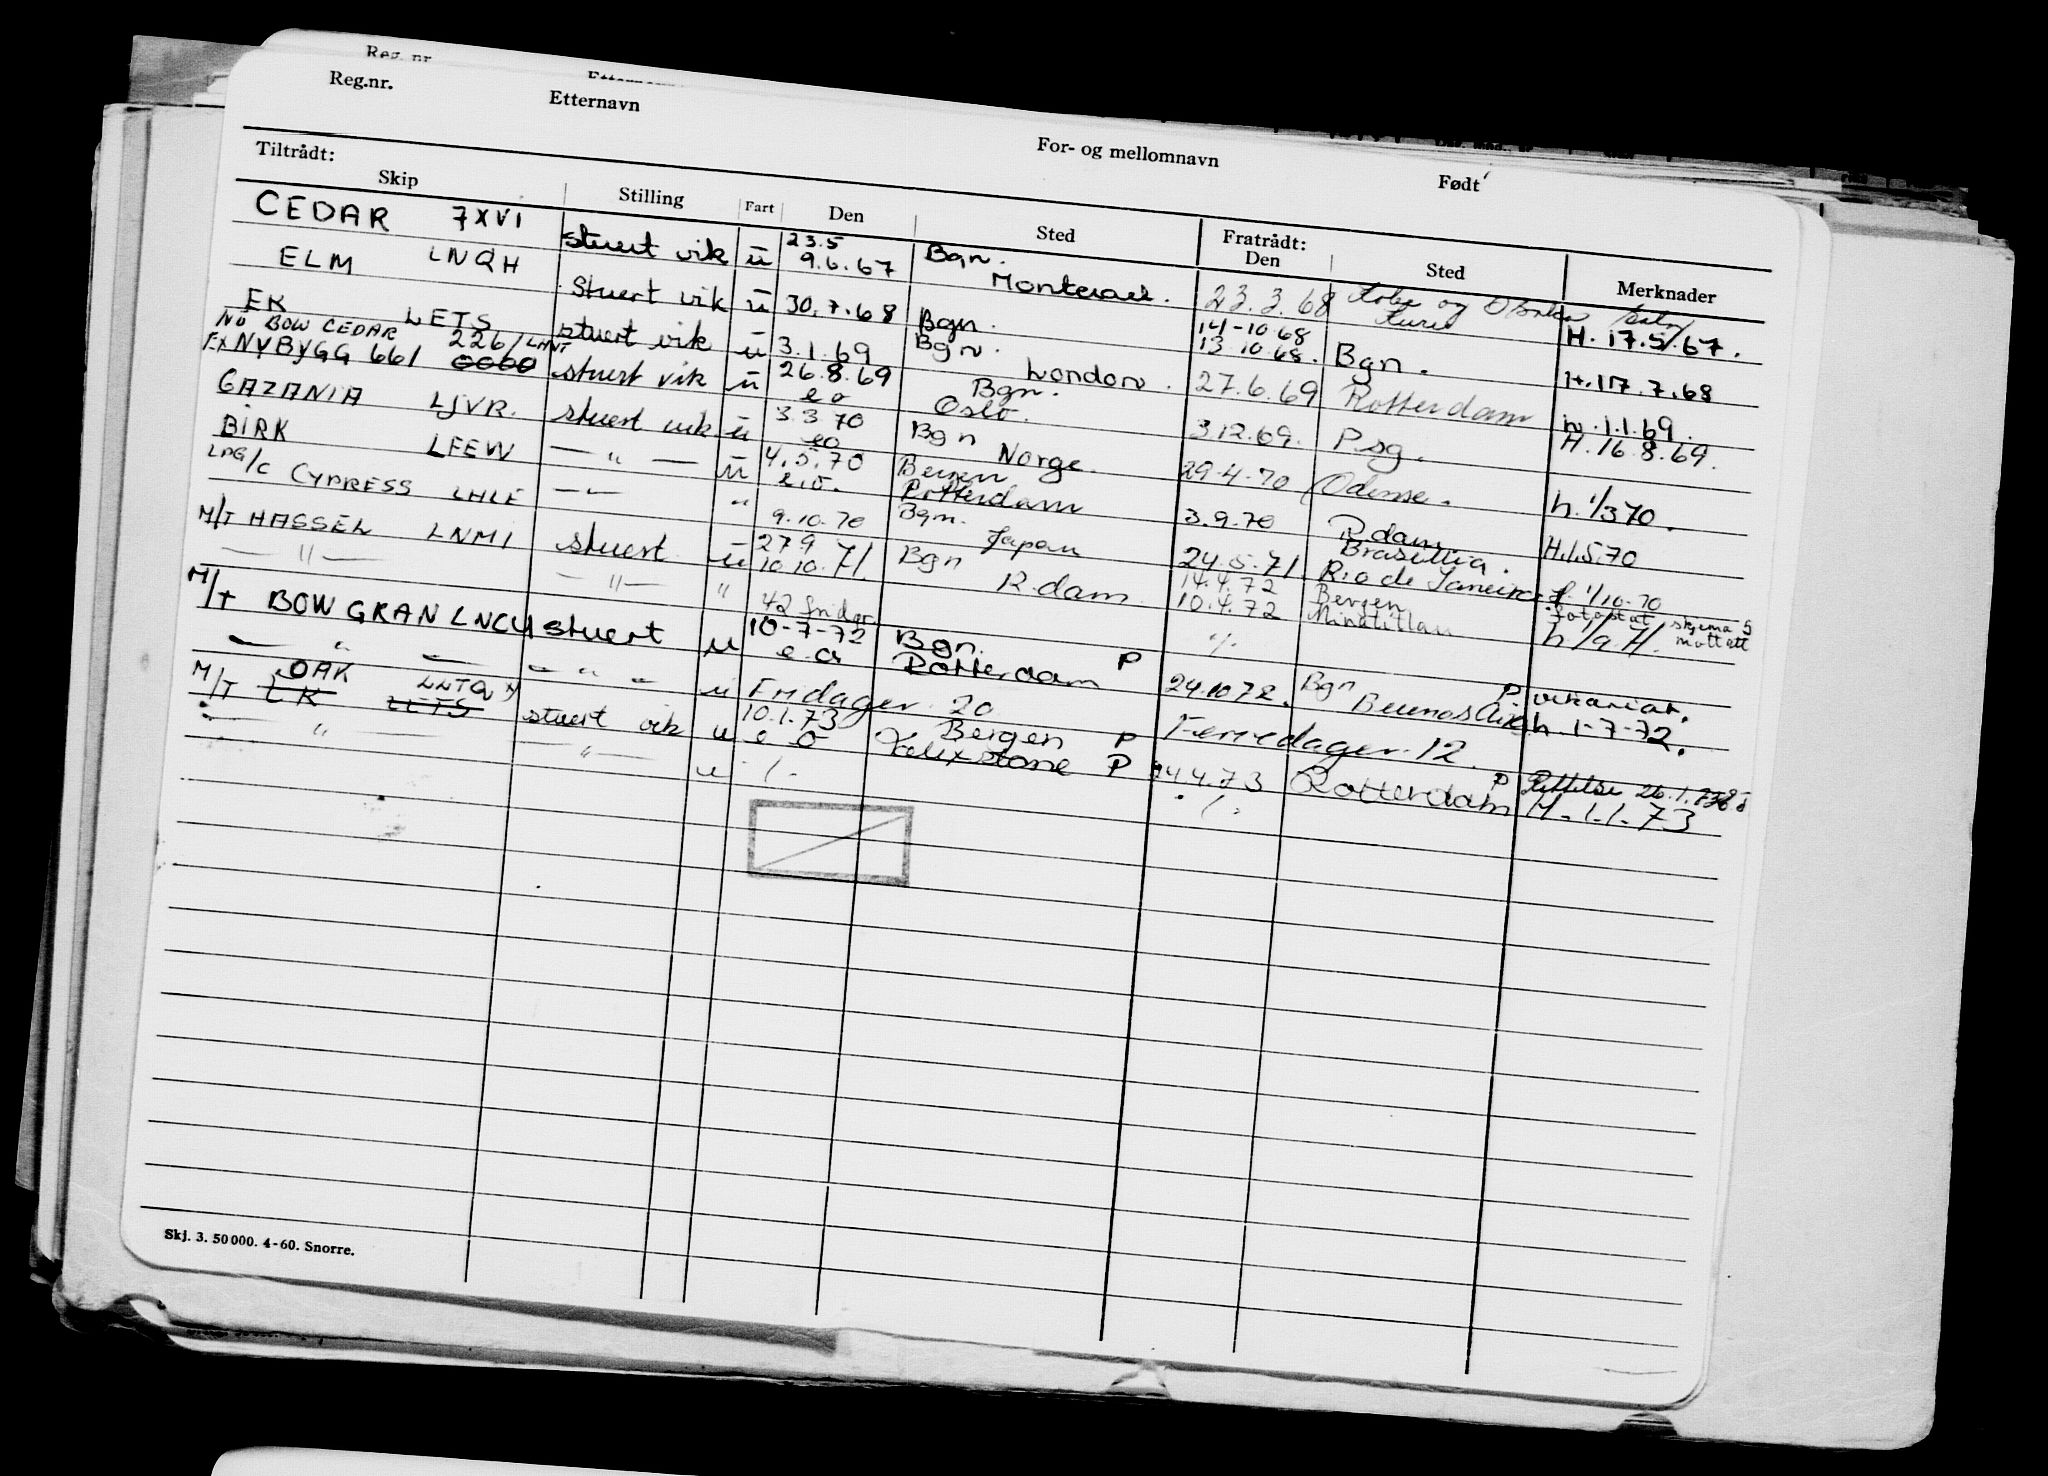 Reg. nr.
Reg.nr.
Etternavn
For- og mellomnavn
Født
Tiltrådt:
Skip
Stilling
Fart
Den
Sted
Fratrådt:
Den
Sted
Merknader
CEDAR 7XVI stuert vik u 23.5 Bgn.
9.6.67 23.3.68 Kobe og H. 17.5.67.
ELM LNQH Stuert vik u 30.7.68 Bgn. 14-10-68
13.10.68. Bgn. H.17.7.68
EK LETS stuert vik u 3.1.69 Bgn. London. 27.6.69 Rotterdam h.1.1.69.
NÅ BOW CEDAR 226/LHNT
EX NYBYGG 661 stuert vik u 26.8.69 Bgn. 3.12.69. Psg. H.16.8.69.
eo Oslo.
GAZANIA LJVR. stuert vik u 3.3.70 Bgn Norge. 29-4-70 Odense. h. 1/3 70.
eo
BIRK LFEW — " — u 4.5.70 Bergen 3.9.70 R.dam H.1.5.70
e.o. Rotterdam
LPG/C CYPRESS LHLE — " — " 9.10.70 Bgn. Japan 24.5.71. Brasillia.
Rio de Janeiro 1/10.70
M/T HASSEL LNMI stuert u 27.9 Bgn 14.4.72 Bergen fotostat skjema 5 mottatt
10.10.71. R.dam 10.4.72 Minatitlan h 1/9.71.
— " — — " — " 42 fridgr. %
M/T BOW GRAN LNCU stuert u 10-7-72 Bgn. P 24.10.72. Bgn P. vikariat.
e.o Rotterdam Buenos Aires h. 1-7-72.
— " — — " — u Fridager. 20 Feriedager. 12.
M/T OAK LLTQ
EK LETS stuert vik u 10.1.73 Bergen P 24.4.73 Rotterdam P Rettelse 26.1.73
e o Felixstowe P H.1.1.73
— " — — " — u %. %.
Skj. 3. 50000. 4-60. Snorre.